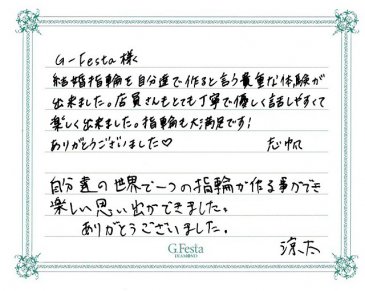 G-Festa様
結婚指輪を自分達で作ると言う貴重な体験が
出来ました。店員さんもとても丁寧で優しく話しやすくて
楽しく出来ました。指輪も大満足です!
ありがとうございました♡
自分達の世界で一つの指輪が作る事ができ
楽しい思い出ができました。
ありがとうございました。
涼太
G.Festa
DIAMOND